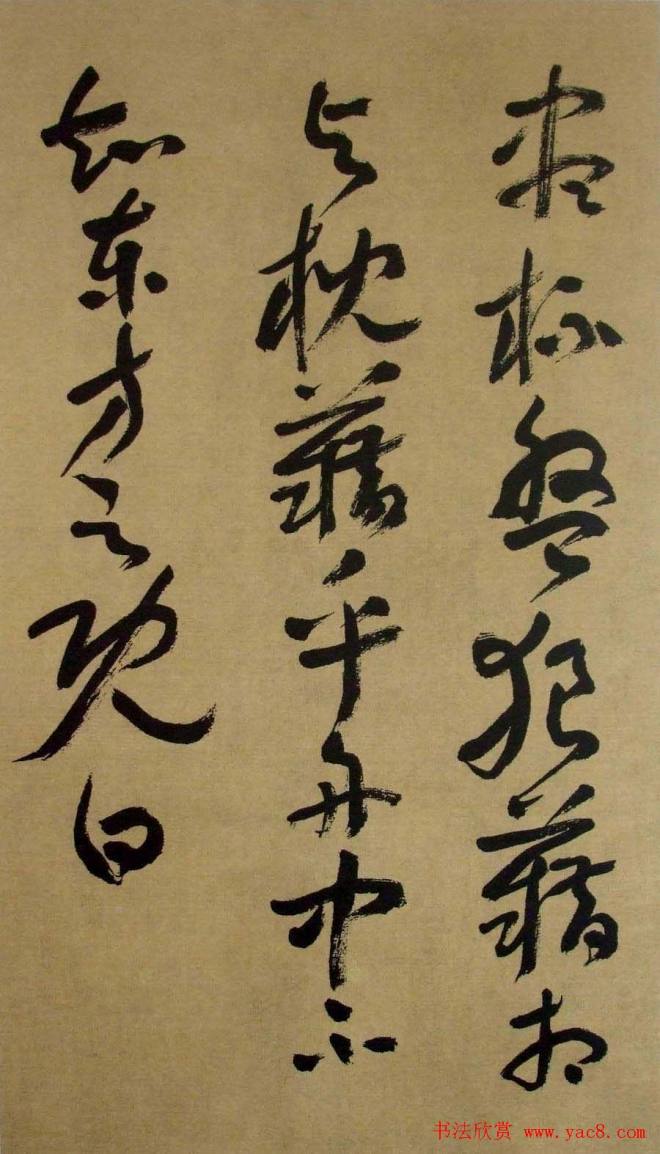 尽杯盘狼藉相
与枕藉乎舟中不
知东方之既白
书法欣赏 www.yac8.com